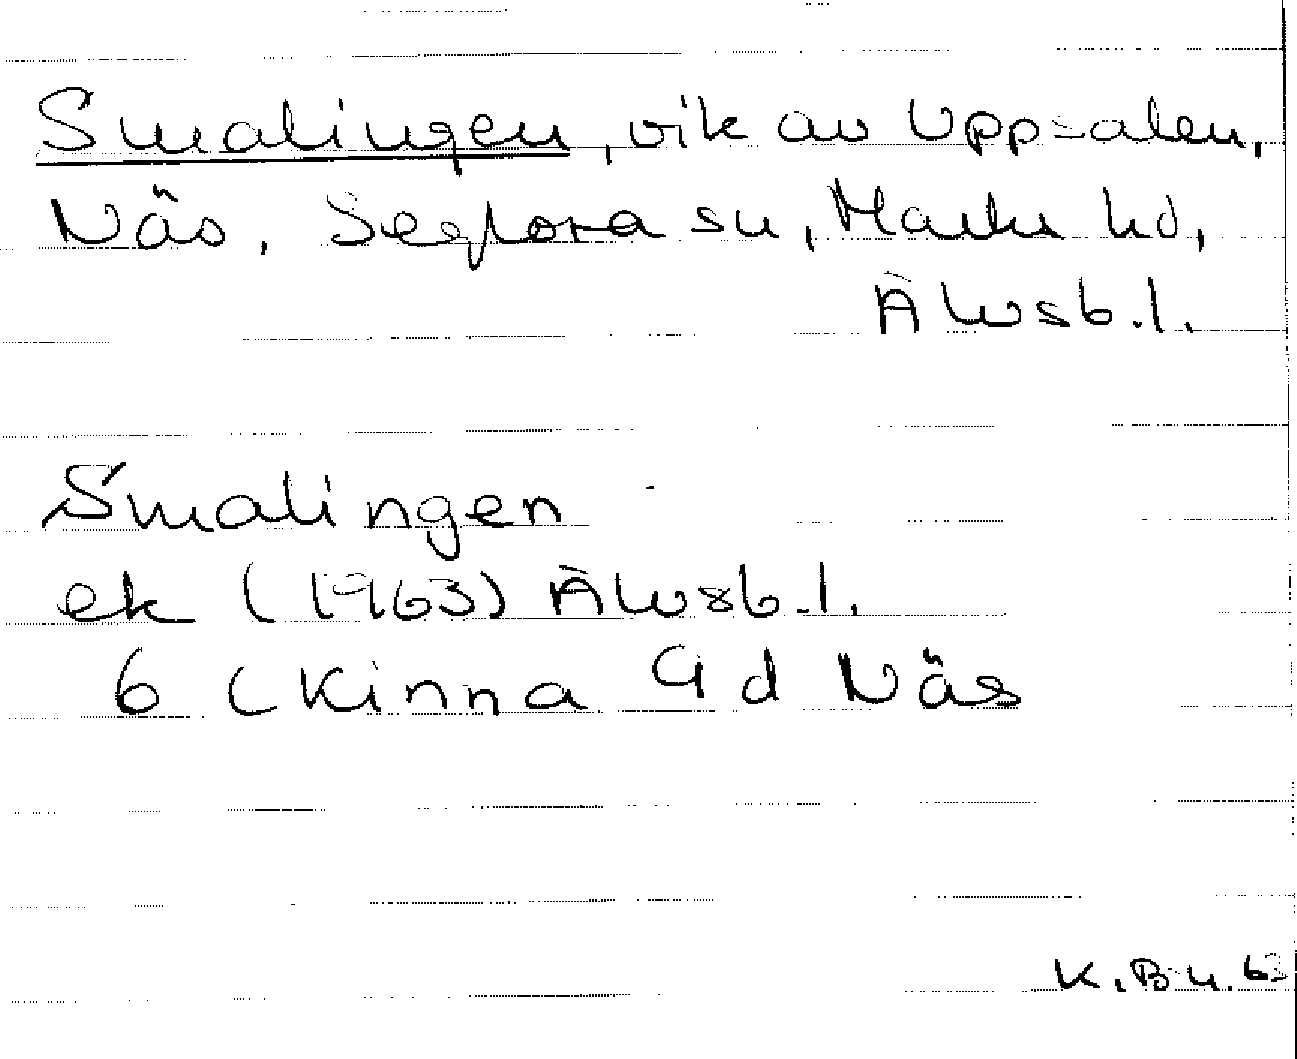 Smalingen, vik av Uppsalen,
Näs, Seglora sn, Marks hd,
Älvsb.l.
Smalingen
ek (1963) Älvsb.l.
6 C Kinna 9 d Näs
K.Bn. 63